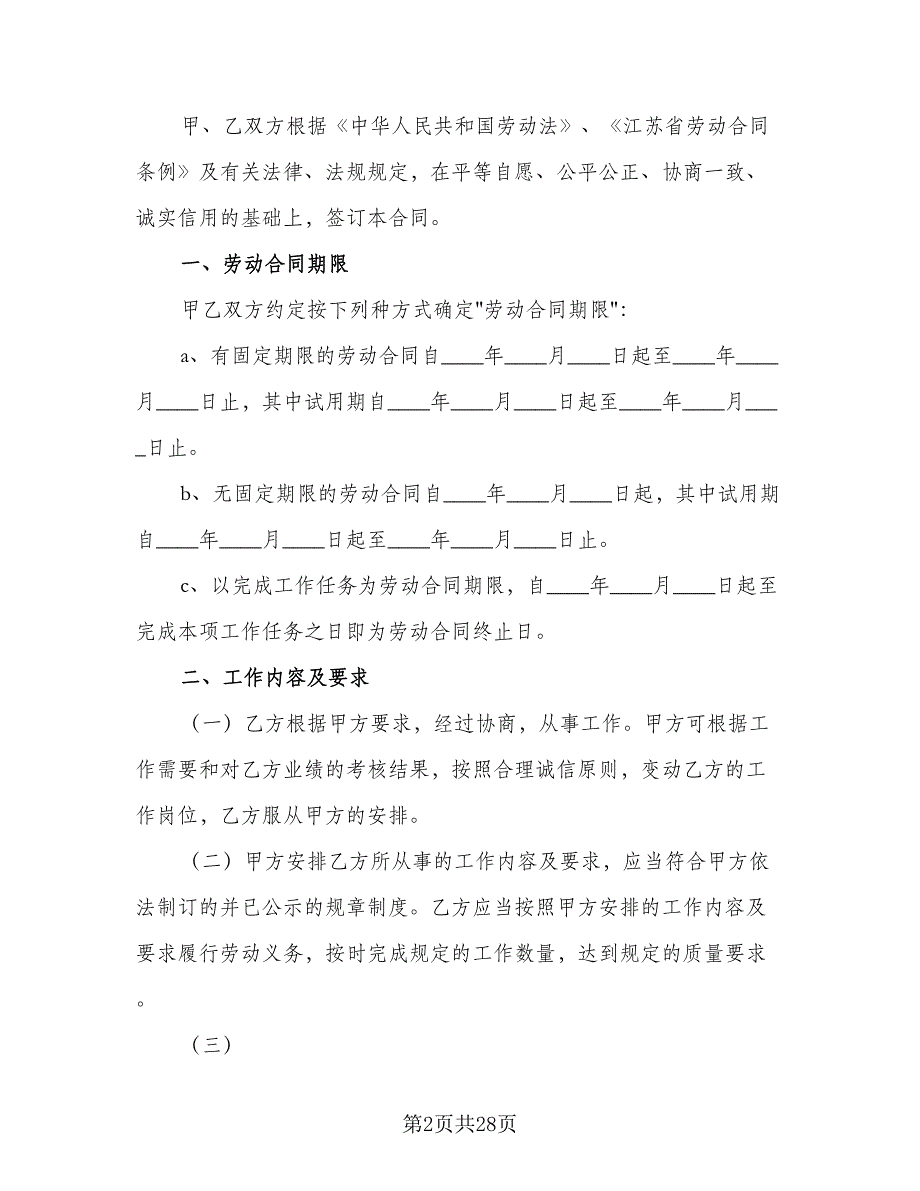 甲、乙双方根据《中华人民共和国劳动法》、《江苏省劳动合同
条例》及有关法律、法规规定，在平等自愿、公平公正、协商一致、
诚实信用的基础上，签订本合同。
一、劳动合同期限
甲乙双方约定按下列种方式确定"劳动合同期限"：
a、有固定期限的劳动合同自____年____月____日起至____年____
月____日止，其中试用期自____年____月____日起至____年____月___
_日止。
b、无固定期限的劳动合同自____年____月____日起，其中试用期
自____年____月____日起至____年____月____日止。
c、以完成工作任务为劳动合同期限，自____年____月____日起至
完成本项工作任务之日即为劳动合同终止日。
二、工作内容及要求
（一）乙方根据甲方要求，经过协商，从事工作。甲方可根据工
作需要和对乙方业绩的考核结果，按照合理诚信原则，变动乙方的工
作岗位，乙方服从甲方的安排。
（二）甲方安排乙方所从事的工作内容及要求，应当符合甲方依
法制订的并已公示的规章制度。乙方应当按照甲方安排的工作内容及
要求履行劳动义务，按时完成规定的工作数量，达到规定的质量要求
。
（三）
第2页共28页